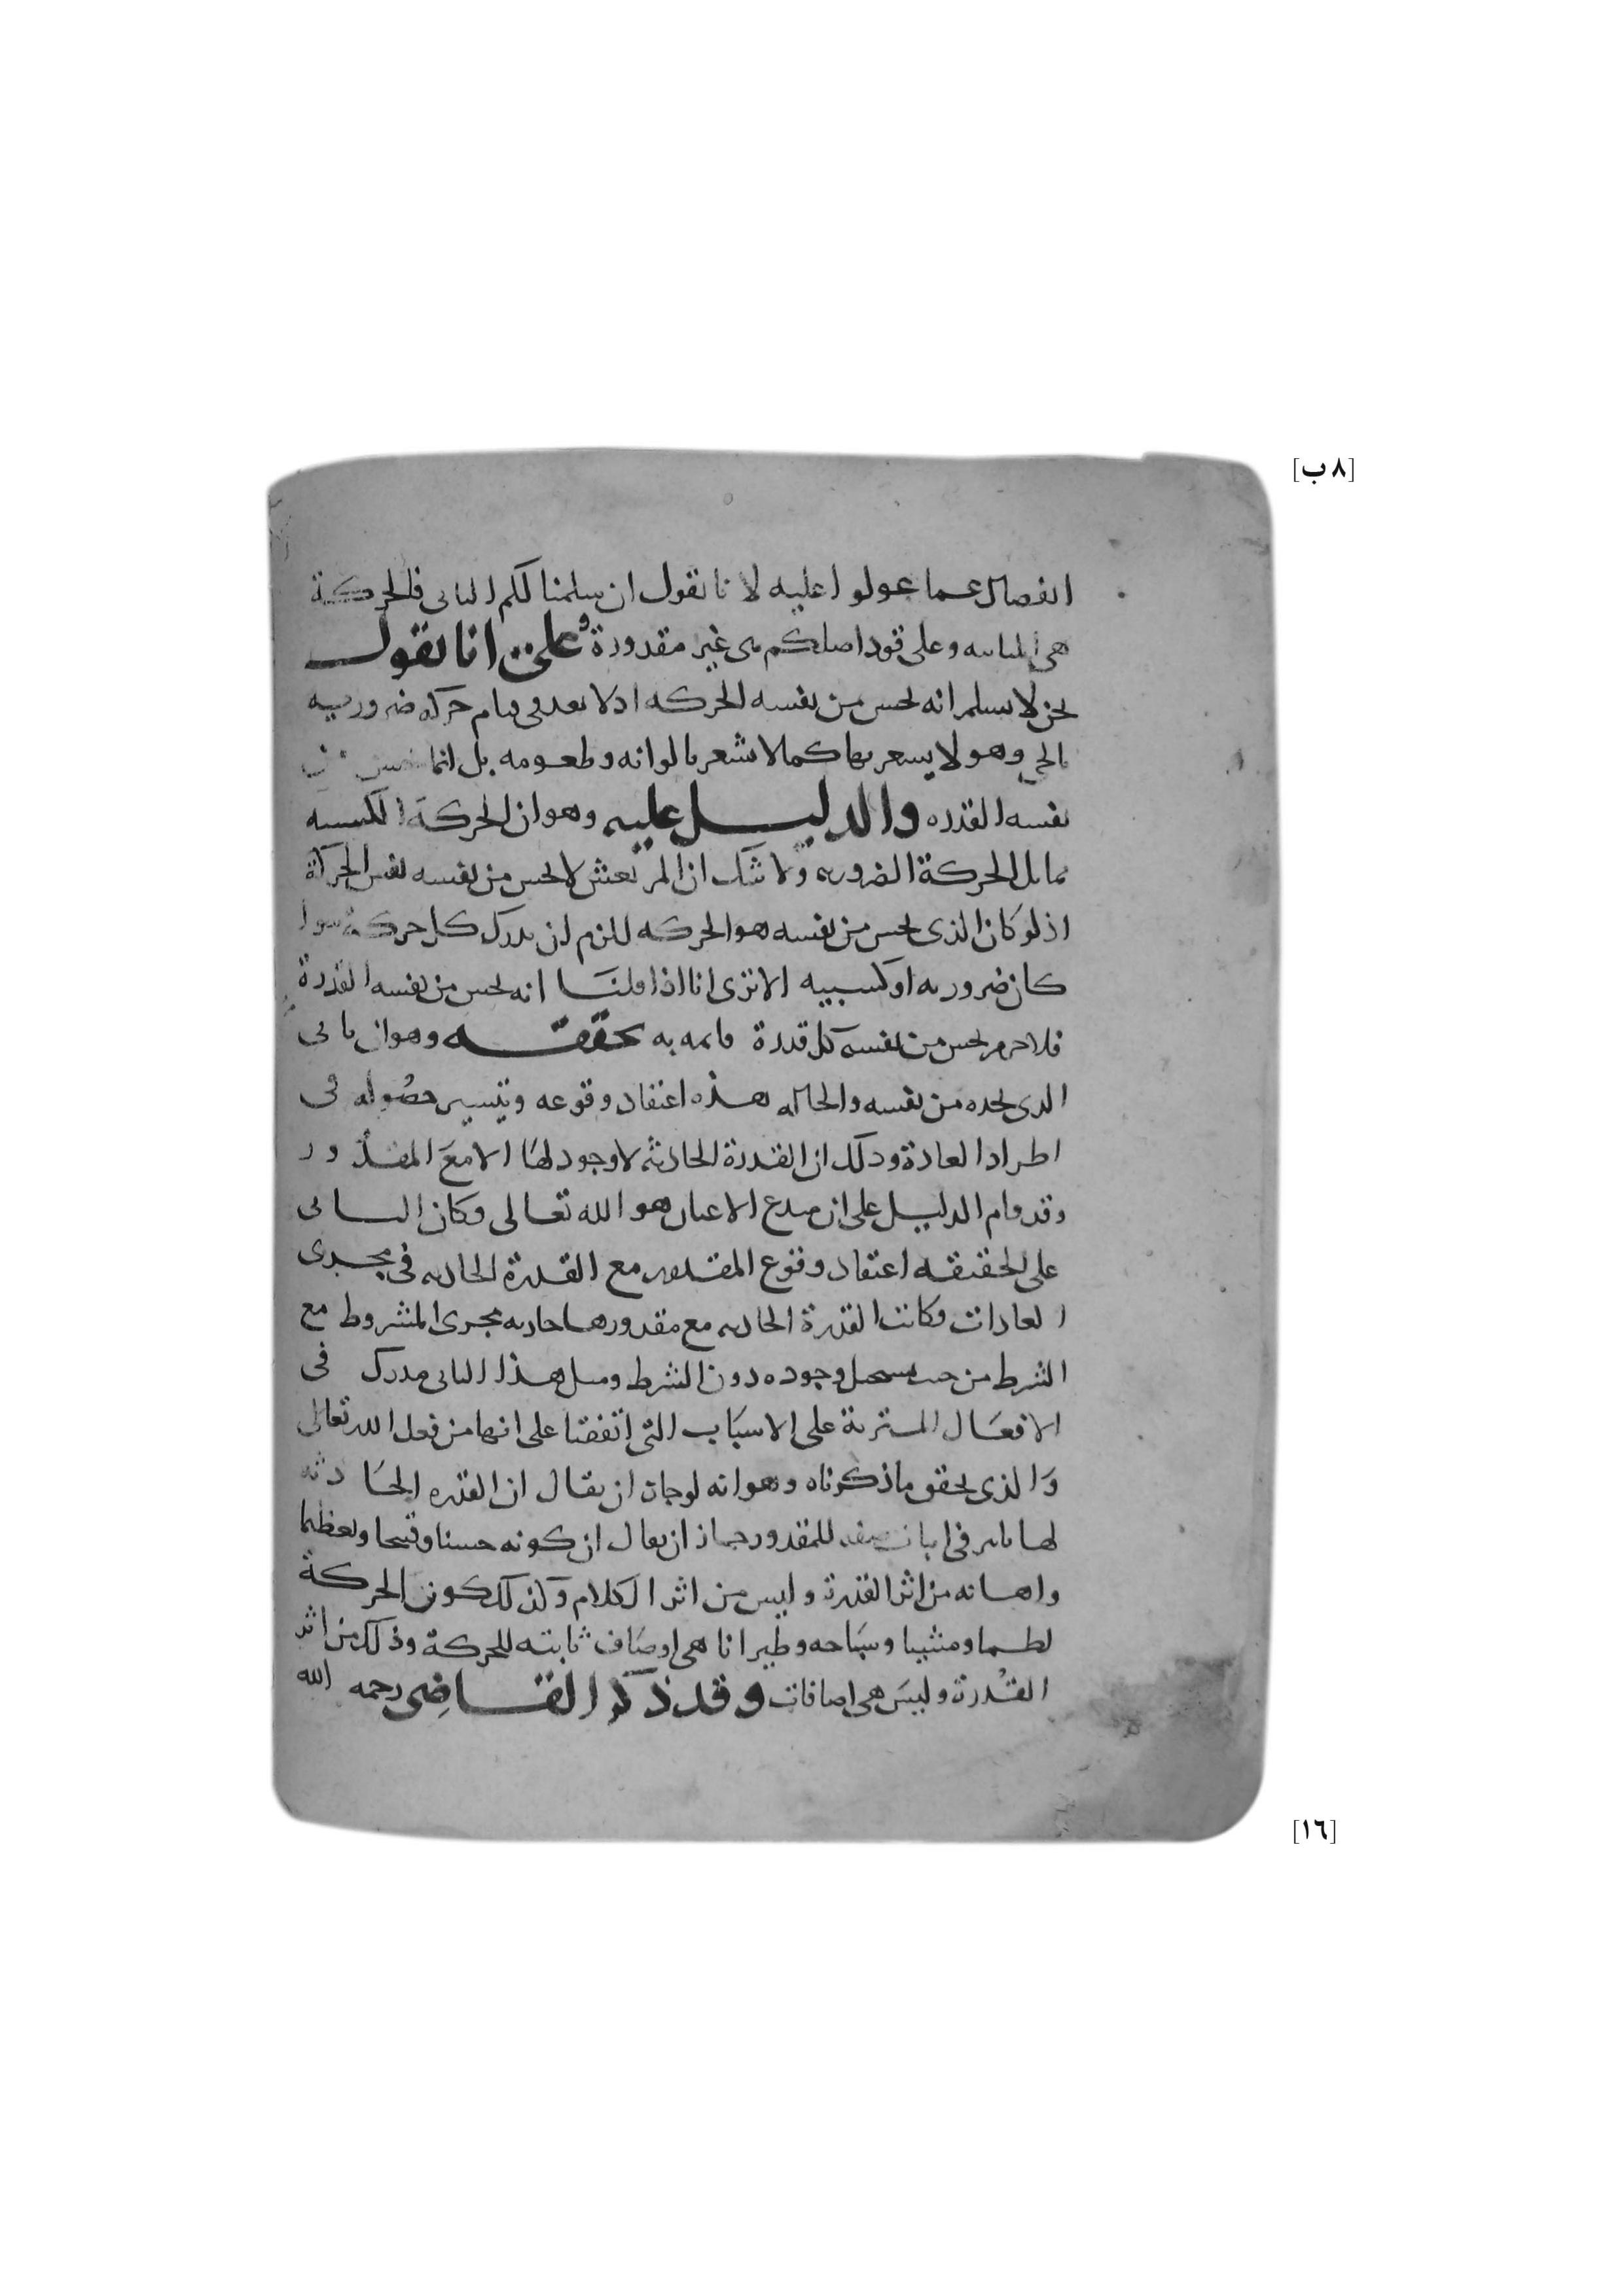 [٨ ب]
انفصال عما عولوا عليه لانا نقول ان سلمنا لكم التاتى فالحركة
هى المتاتيه وعلى قود اصلكم هى غير مقدورة وعلى انا نقول
نحن لا نسلم انه يحس من نفسه الحركه اذ لا بعد فى قيام حركه ضروريه
بالحى وهو لا يشعر بها كما لا شعر بالوانه وطعومه بل انما يحس من
نفسه القدره والدليل عليه وهو ان الحركة الكسبيه
تماثل الحركة الضروريه ولا شك ان المرتعش لا يحس من نفسه نفس الحركة
اذ لو كان الذى يحس من نفسه هو الحركه للزم ان يدرك كل حركة سوا
كان ضروريه او كسبيه الا ترى انا اذا قلنا انه يحس من نفسه القدرة
فلا جرم يحس من نفسه كل قدرة قايمه به تحققه وهو ان تاتى
الذى يجده من نفسه والحاله هذه اعتقاد وقوعه وتيسير حصوله فى
اطراد العادة وذلك ان القدرة الحادثه لا وجود لها الا مع المقدور
وقد قام الدليل على ان مبدع الاعيان هو الله تعالى فكان التاتى
على الحقيقه اعتقاد وقوع المقدور مع القدرة الحادثه فى مجرى
العادات فكانت القدرة الحادثه مع مقدورها جاريه مجرى المشروط مع
الشرط من حيث يستحيل وجوده دون الشرط ومثل هذا التاتى مدرك فى
الافعال المترتبة على الاسباب التى اتفقنا على انها من فعل الله تعالى
والذى يحقق ما ذكرناه وهو انه لو جاز ان يقال ان القدره الحادثه
لها تاثير فى اثبات صفه للمقدور جاز ان يقال ان كونه حسنا وقبيحا وتعظيما
واهانه من اثر القدرة وليس من اثر الكلام وكذلك كون الحركة
لطما ومشيا وسباحه وطيرانا هى اوصاف ثابته للحركة وذلك من اثر
القدرة وليس هى اضافات وقد ذكر القاضى رحمه الله
[١٦]